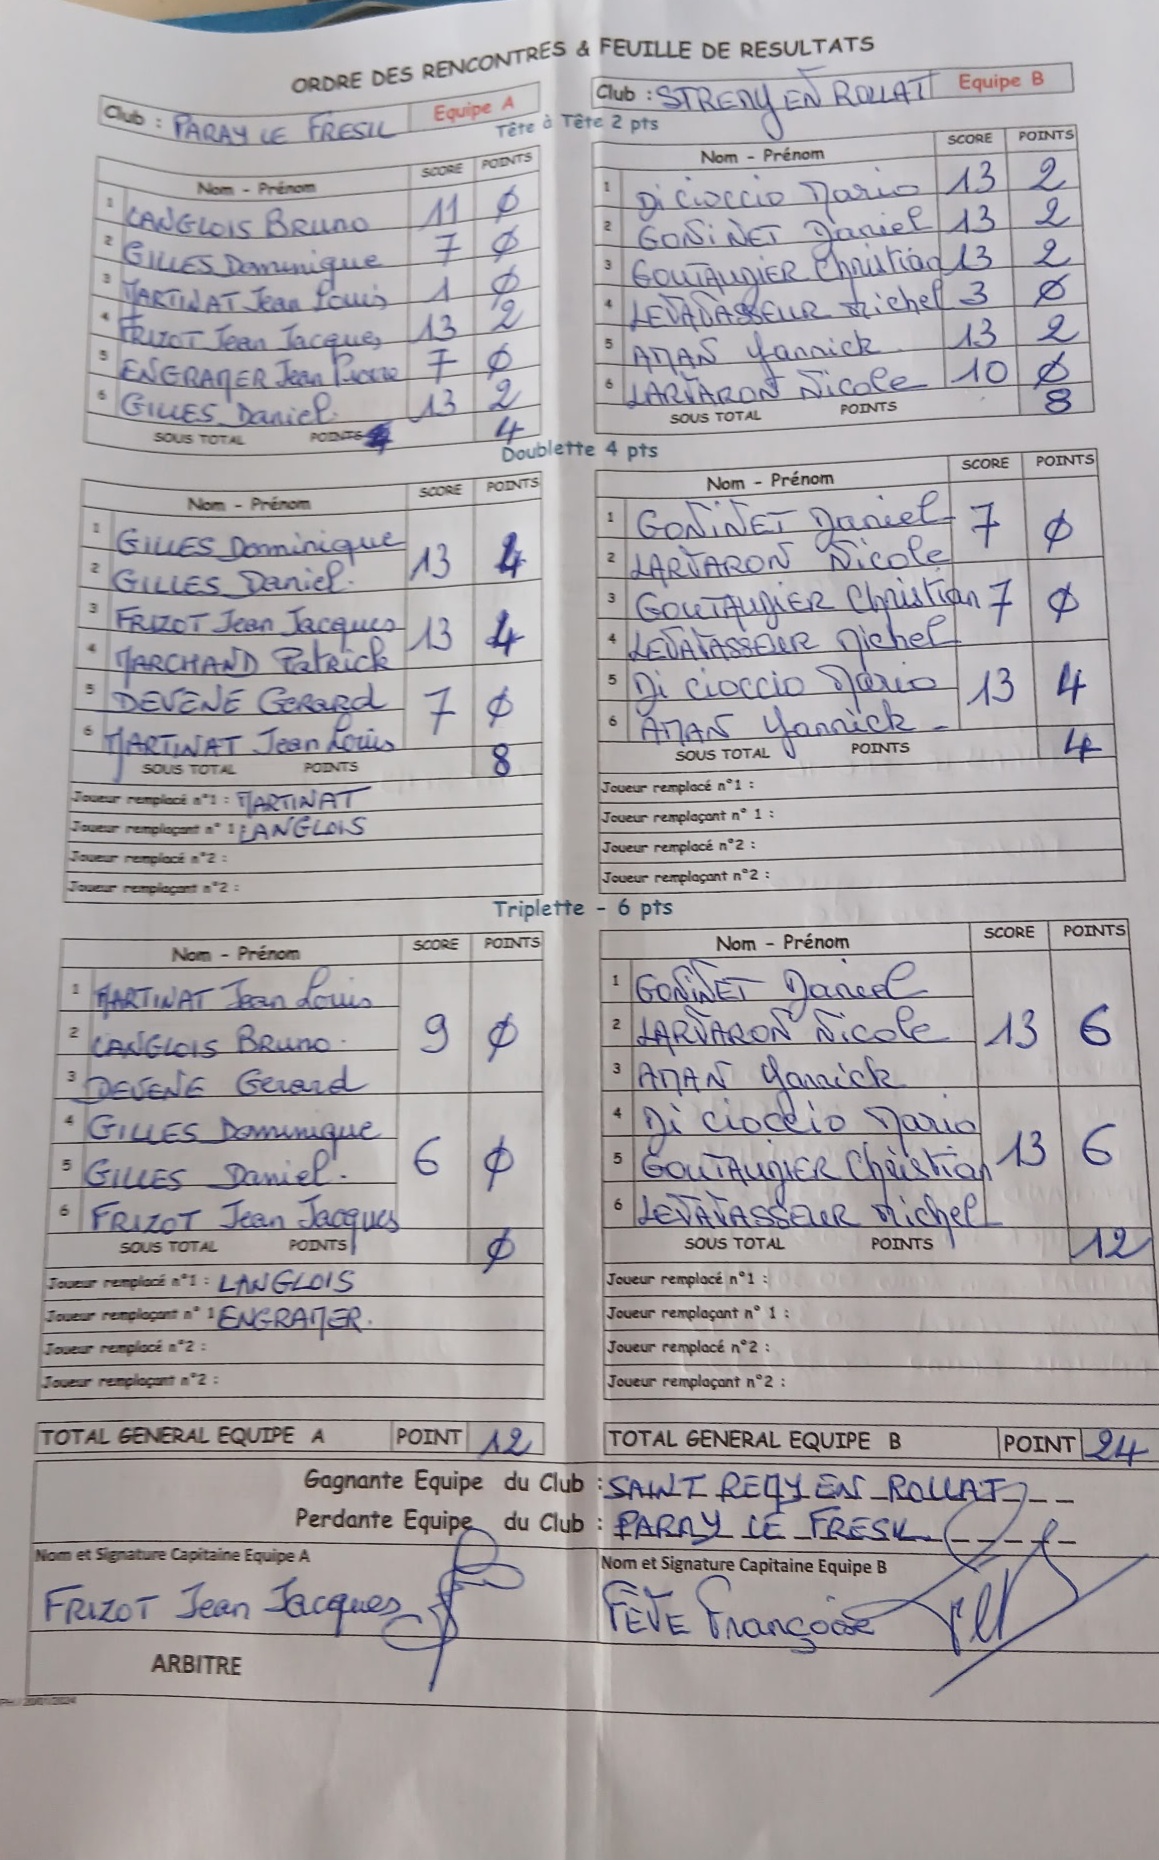 ORDRE DES RENCONTRES & FEUILLE DE RESULTATS
Club : PARAY LE FRESIL Equipe A
Club : ST REMY EN ROLLAT Equipe B
Tête à Tête 2 pts
Nom - Prénom SCORE POINTS
1 LANGLOIS Bruno 11 0
2 GILLES Dominique 7 0
3 MARTINAT Jean Louis 1 0
4 FRIZOT Jean Jacques 13 2
5 ENGRAMER Jean Pierre 7 0
6 GILLES Daniel. 13 2
SOUS TOTAL POINTS 4
Nom - Prénom SCORE POINTS
1 Di cioccio Mario 13 2
2 GONINET Daniel 13 2
3 GOUTAUDIER Christian 13 2
4 LEVAVASSEUR Michel 3 0
5 AMAN Yannick 13 2
6 LARVARON Nicole 10 0
SOUS TOTAL POINTS 8
Doublette 4 pts
Nom - Prénom SCORE POINTS
1 GILLES Dominique
2 GILLES Daniel. 13 4
3 FRIZOT Jean Jacques
4 MARCHAND Patrick 13 4
5 DEVENE Gerard
6 MARTINAT Jean Louis 7 0
SOUS TOTAL POINTS 8
Joueur remplacé n°1 : MARTINAT
Joueur remplaçant n° 1 : LANGLOIS
Joueur remplacé n°2 :
Joueur remplaçant n°2 :
Nom - Prénom SCORE POINTS
1 GONINET Daniel
2 LARVARON Nicole 7 0
3 GOUTAUDIER Christian
4 LEVAVASSEUR Michel 7 0
5 Di cioccio Mario
6 AMAN Yannick - 13 4
SOUS TOTAL POINTS 4
Joueur remplacé n°1 :
Joueur remplaçant n° 1 :
Joueur remplacé n°2 :
Joueur remplaçant n°2 :
Triplette - 6 pts
Nom - Prénom SCORE POINTS
1 MARTINAT Jean Louis
2 LANGLOIS Bruno. 9 0
3 DEVENE Gerard
4 GILLES Dominique
5 GILLES Daniel. 6 0
6 FRIZOT Jean Jacques
SOUS TOTAL POINTS 0
Joueur remplacé n°1 : LANGLOIS
Joueur remplaçant n° 1 ENGRAMER.
Joueur remplacé n°2 :
Joueur remplaçant n°2 :
Nom - Prénom SCORE POINTS
1 GONINET Daniel
2 LARVARON Nicole 13 6
3 AMAN Yannick
4 Di cioccio Mario
5 GOUTAUDIER Christian 13 6
6 LEVAVASSEUR Michel
SOUS TOTAL POINTS 12
Joueur remplacé n°1 :
Joueur remplaçant n° 1 :
Joueur remplacé n°2 :
Joueur remplaçant n°2 :
TOTAL GENERAL EQUIPE A POINT 12
TOTAL GENERAL EQUIPE B POINT 24
Gagnante Equipe du Club : SAINT REMY EN ROLLAT
Perdante Equipe du Club : PARAY LE FRESIL
Nom et Signature Capitaine Equipe A
FRIZOT Jean Jacques
Nom et Signature Capitaine Equipe B
FÊVE Françoise
ARBITRE